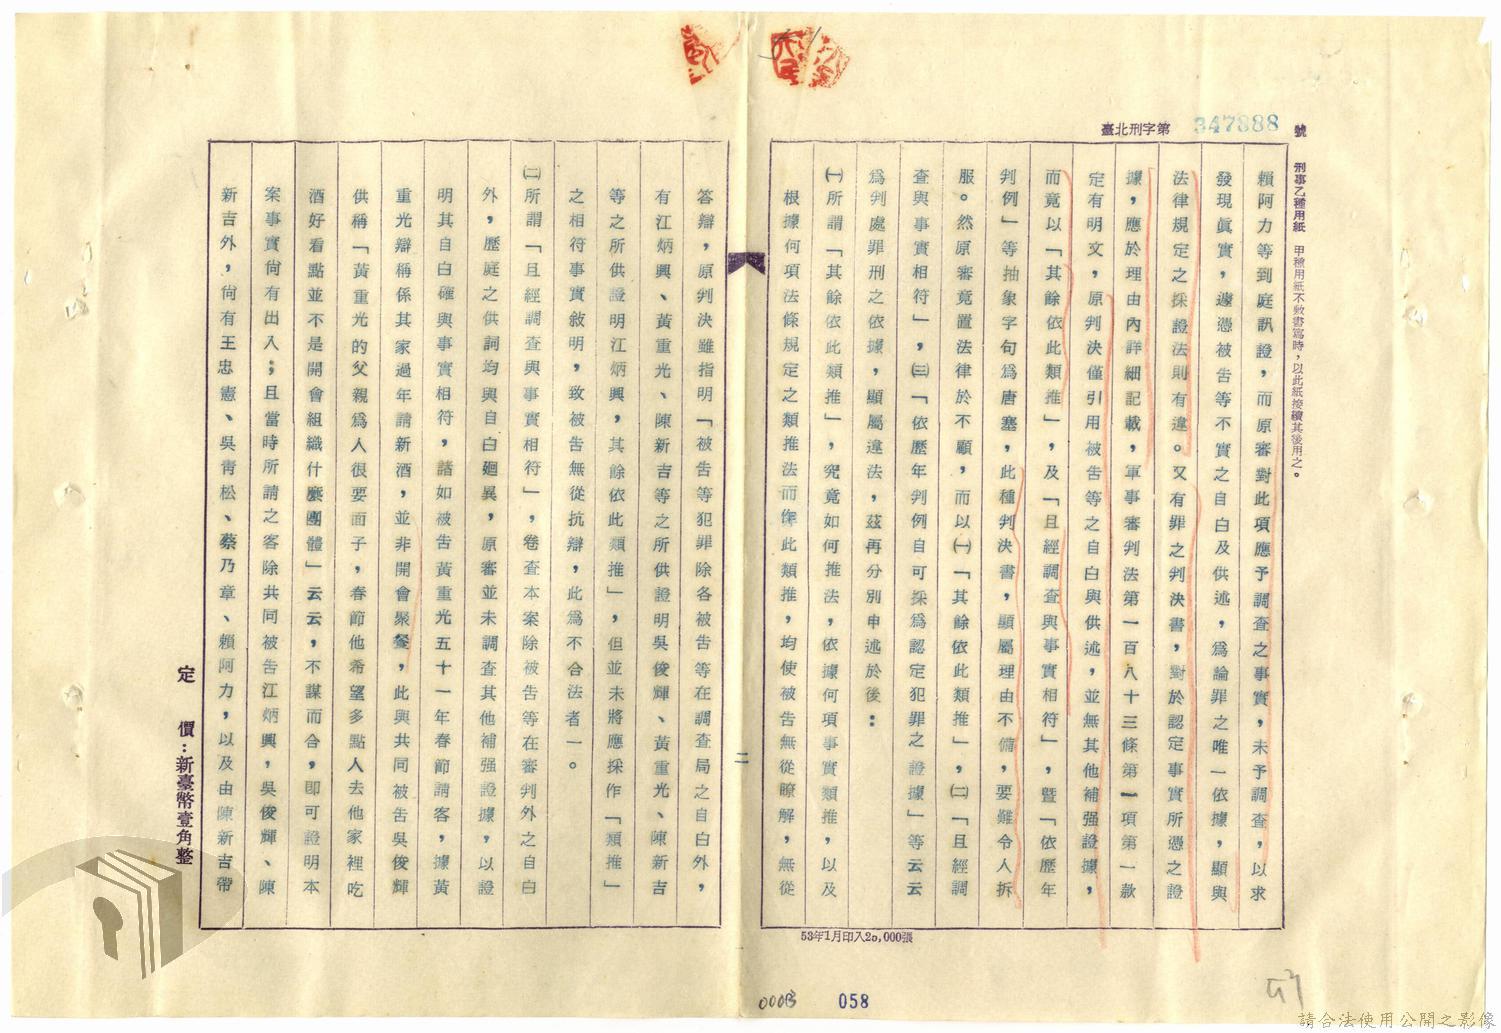 臺北刑字第 347888 號
刑事乙種用紙 甲種用紙不敷書寫時，以此紙接續其後用之。
賴阿力等到庭訊證，而原審對此項應予調查之事實，未予調查，以求
發現眞實，遽憑被告等不實之自白及供述，爲論罪之唯一依據，顯與
法律規定之採證法則有違。又有罪之判決書，對於認定事實所憑之證
據，應於理由內詳細記載，軍事審判法第一百八十三條第一項第一款
定有明文，原判決僅引用被告等之自白與供述，並無其他補强證據，
而竟以「其餘依此類推」，及「且經調查與事實相符」，曁「依歷年
判例」等抽象字句爲唐塞，此種判決書，顯屬理由不備，要難令人折
服。然原審竟置法律於不顧，而以㈠「其餘依此類推」，㈡「且經調
查與事實相符」，㈢「依歷年判例自可採爲認定犯罪之證據」等云云
爲判處罪刑之依據，顯屬違法，茲再分別申述於後：
㈠所謂「其餘依此類推」，究竟如何推法，依據何項事實類推，以及
根據何項法條規定之類推法而作此類推，均使被告無從瞭解，無從
答辯，原判決雖指明「被告等犯罪除各被告等在調查局之自白外，
有江炳興、黃重光、陳新吉等之所供證明吳俊輝、黃重光、陳新吉
等之所供證明江炳興，其餘依此類推」，但並未將應採作「類推」
之相符事實敘明，致被告無從抗辯，此爲不合法者一。
㈡所謂「且經調查與事實相符」，卷查本案除被告等在審判外之自白
外，歷庭之供詞均與自白廻異，原審並未調查其他補强證據，以證
明其自白確與事實相符，諸如被告黃重光五十一年春節請客，據黃
重光辯稱係其家過年請新酒，並非開會聚餐，此與共同被告吳俊輝
供稱「黃重光的父親爲人很要面子，春節他希望多點人去他家裡吃
酒好看點並不是開會組織什麼團體」云云，不謀而合，卽可證明本
案事實尙有出入；且當時所請之客除共同被告江炳興，吳俊輝、陳
新吉外，尙有王忠憲、吳靑松、蔡乃章、賴阿力，以及由陳新吉帶
二
定 價：新臺幣壹角整
53年1月印入20,000張
0003
058
請合法使用公開之影像